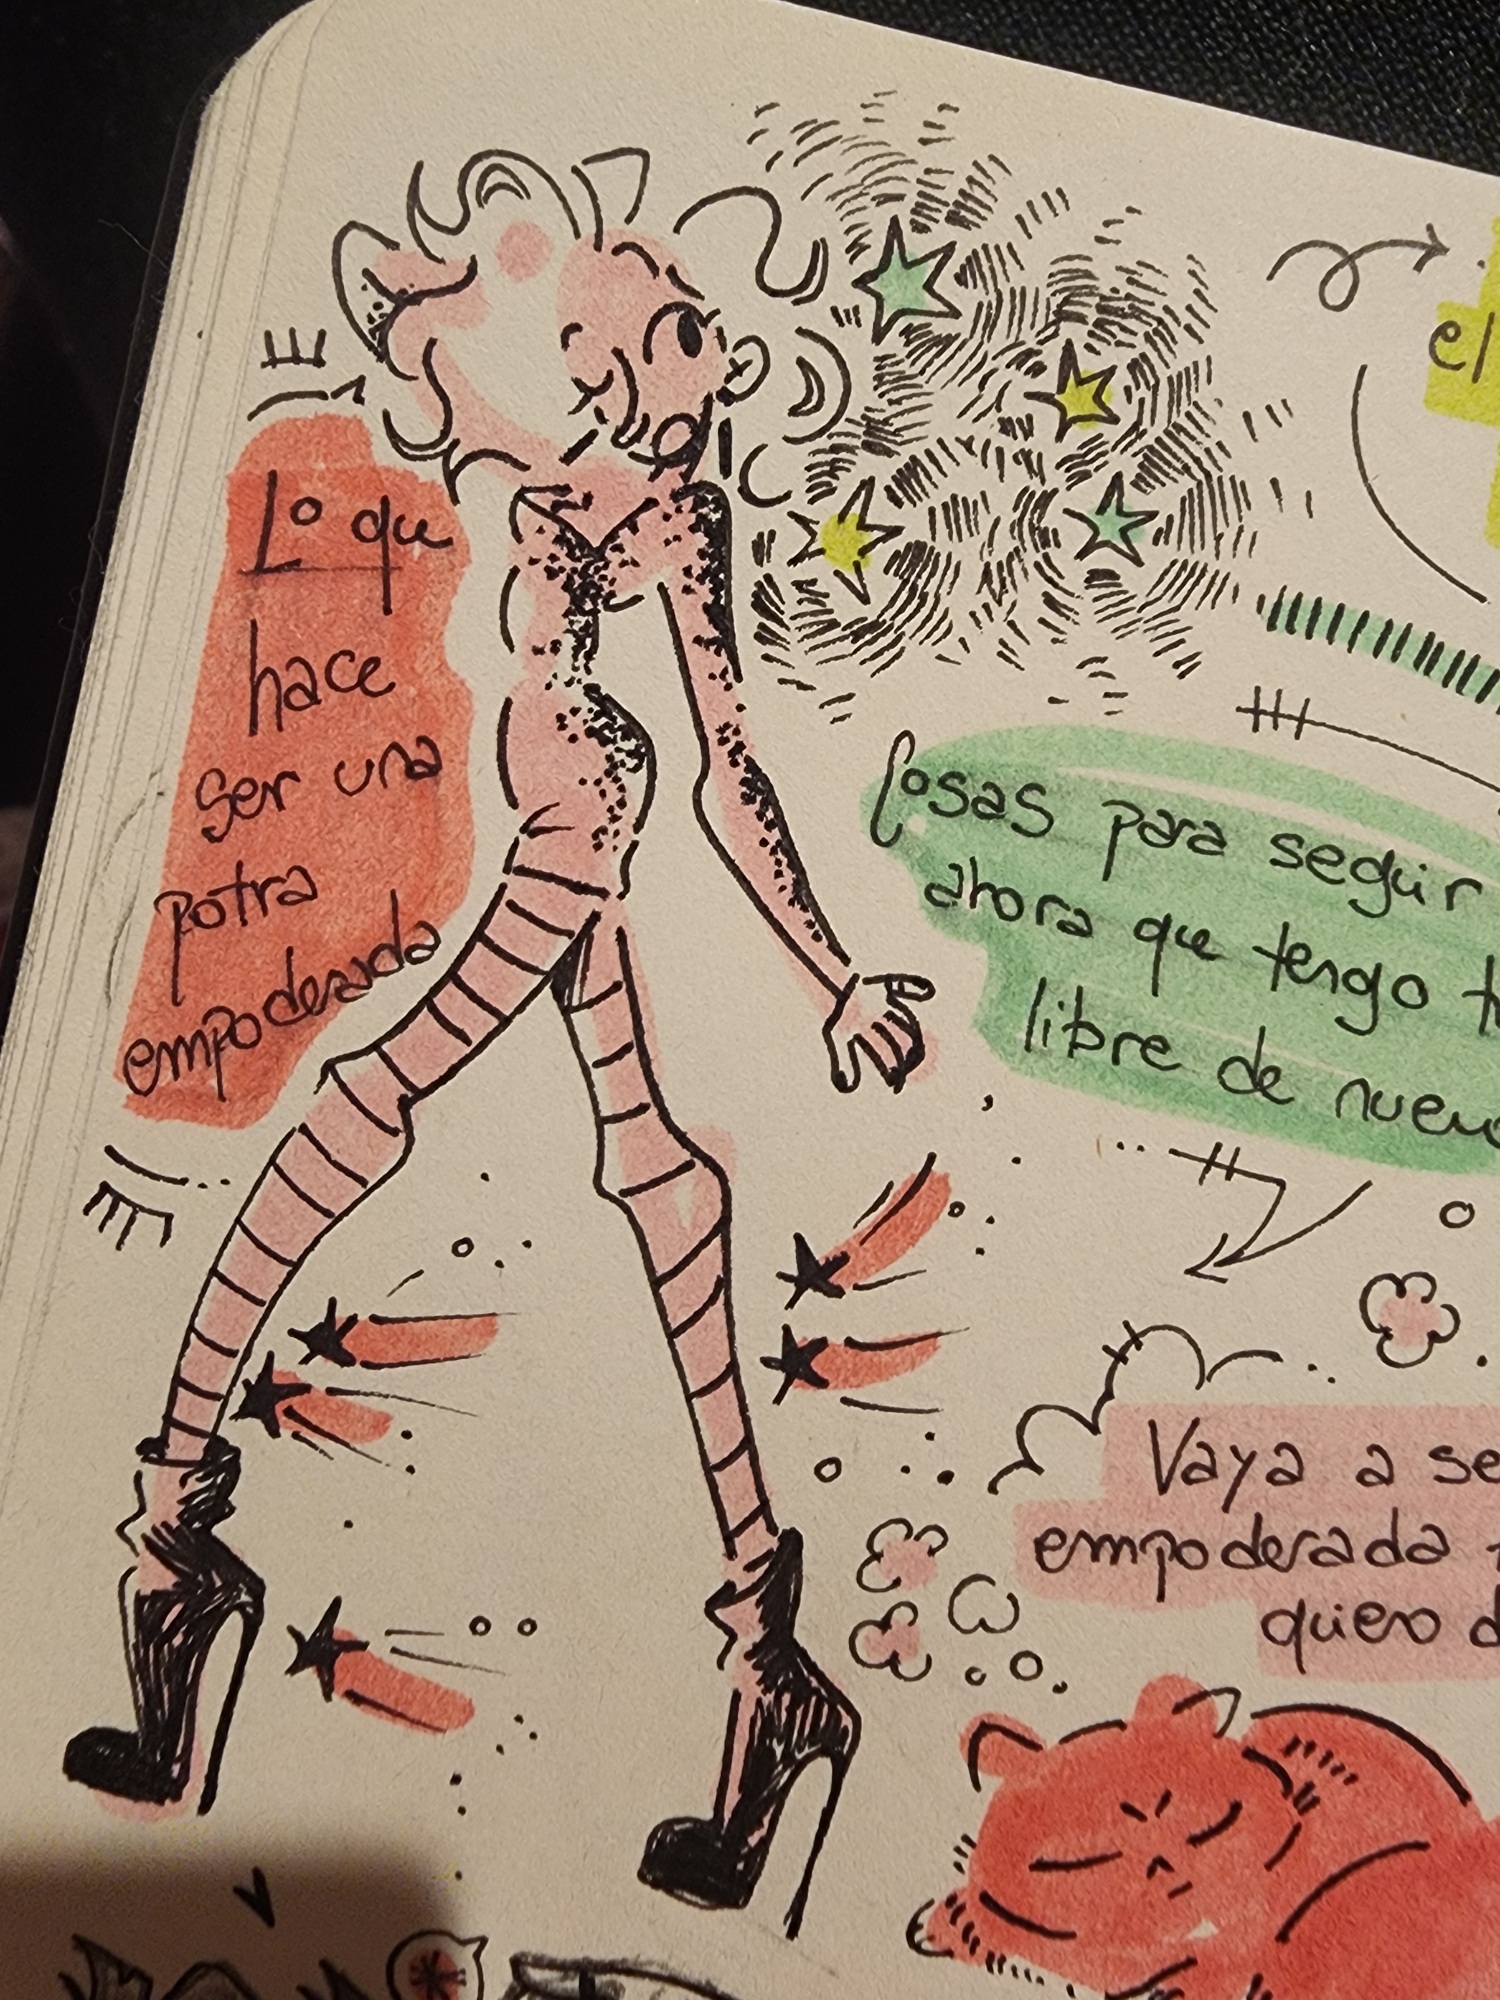 el
Lo que
hace
ser una
potra
empoderada
Cosas para seguir
ahora que tengo
libre de nuevo
Vaya a se
empoderada
quiero d